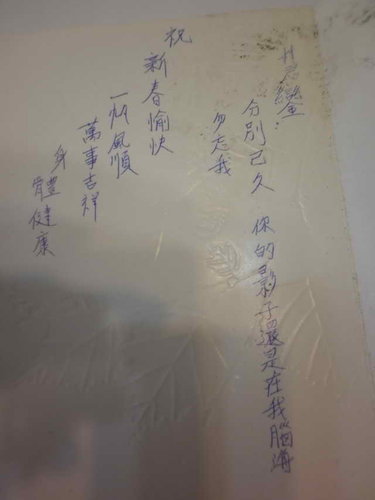 分別已久 你的影子還是在我腦海
勿忘我
祝
新春愉快
一帆風順
萬事吉祥
身體健康